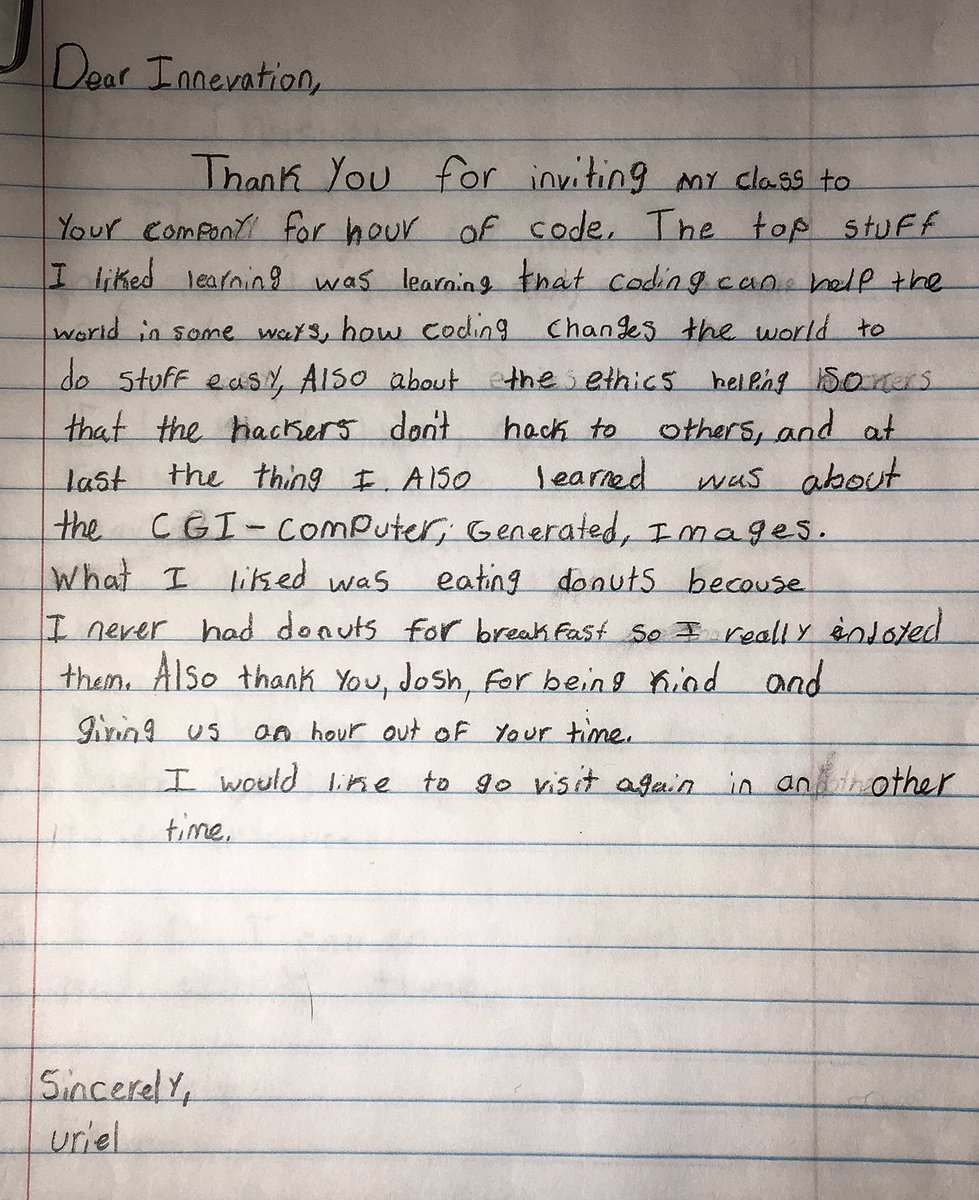 Dear Innevation,
Thank You for inviting my class to
Your company for hour of code. The top stuff
I liked learning was learning that coding can help the
world in some ways, how coding changes the world to
do stuff easy, Also about the ethics helping so
that the hackers don't hack to others, and at
last the thing I. Also learned was about
the CGI-computer, Generated, Images.
What I liked was eating donuts becouse
I never had donuts for breakfast so I really enjoyed
them. Also thank You, Josh, for being kind and
giving us an hour out of your time.
I would like to go visit again in an other
time.
Sincerely,
uriel